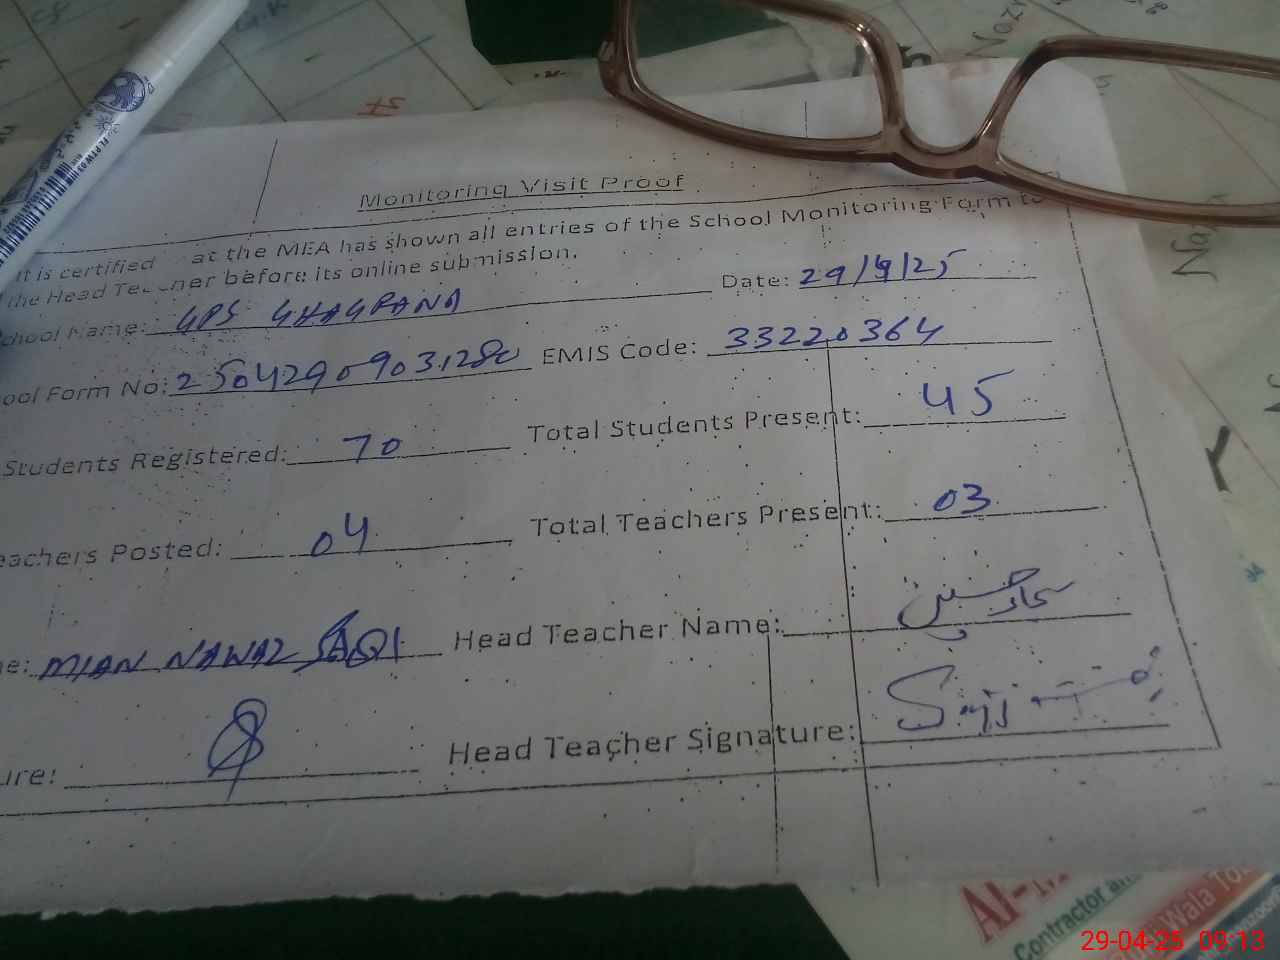 Monitoring Visit Proof
It is certified at the MEA has shown all entries of the School Monitoring Form to
the Head Teacher before its online submission.
School Name: GPS GHAGRANA Date: 29/4/25
ool Form No: 2504290903128c EMIS Code: 33220364
Students Registered: 70 Total Students Present: 45
eachers Posted: 04 Total Teachers Present: 03
e: MIAN NAWAZ Head Teacher Name: سجاد حسین
ure: Head Teacher Signature:
Contractor an
Wala To
29-04-25 09:13